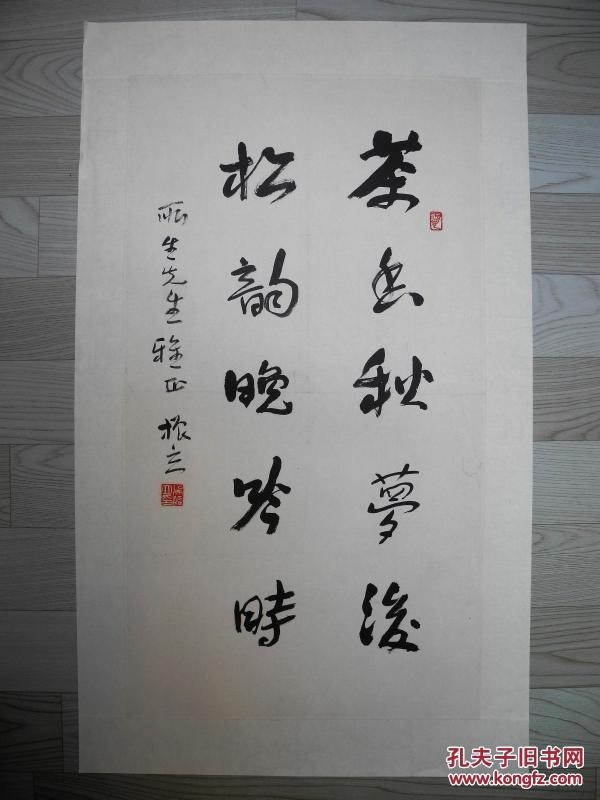 茶香秋夢後
松韻晚吟時
生先生雅正 振立
孔夫子旧书网
www.kongfz.com